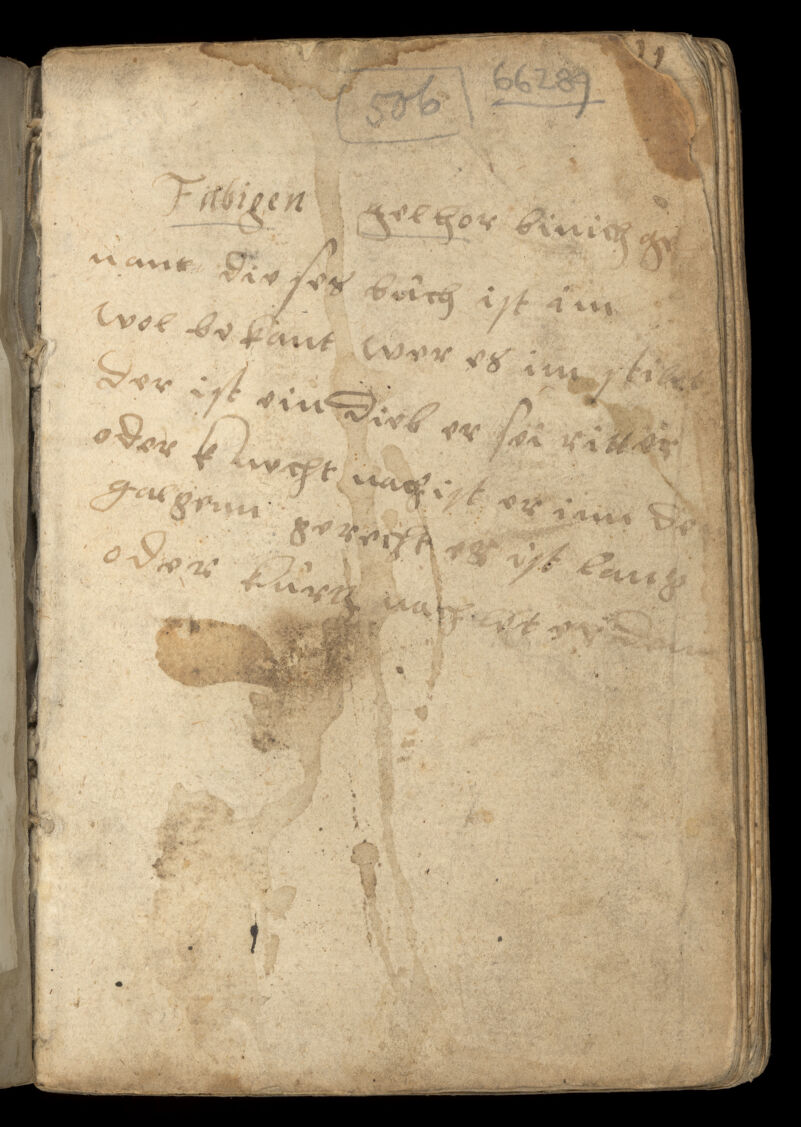 506 66289
Fabigen gelhor binich ge
nant dieses bůch ist im
wol bekant wer es im stilet
der ist ein dieb er sei ritter
oder knecht nach ist er inn de
galgenn gerecht er ist lang
oder kůrtz nach er dem